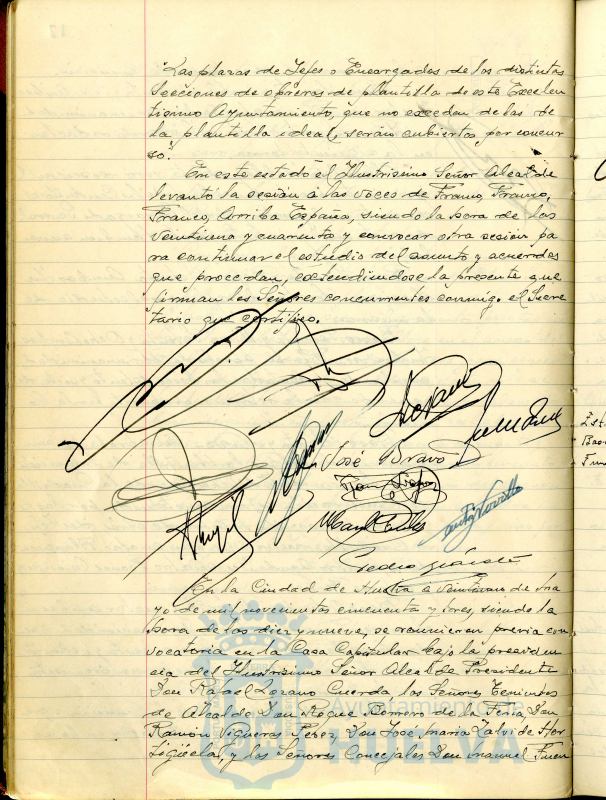 "Las plazas de Jefes o Encargados de las distintas
Secciones de obreros de plantilla de este Excelen
tísimo Ayuntamiento, que no excedan de las de
la plantilla ideal, serán cubiertas por concur
so."
En este estado el Ilustrísimo Señor Alcalde
levantó la sesión a las voces de Franco, Franco,
Franco, Arriba España, siendo la hora de las
veintiuna y cuarenta y convocar otra sesión pa
ra continuar el estudio del asunto y acuerdos
que procedan, extendiéndose la presente que
firman los Señores concurrentes conmigo el Secre
tario que certifico.
José Bravo
En la Ciudad de Huelva a veintiuno de Ma
yo de mil novecientos cincuenta y tres, siendo la
hora de las diez y nueve, se reunieron previa con
vocatoria en la Casa Capitular bajo la presiden
cia del Ilustrísimo Señor Alcalde Presidente
Don Rafael Lozano Cuerda los Señores Tenientes
de Alcalde, Don Roque Borrero de la Feria, Don
Ramón Vigueras Pérez, Don José María Zalvide Hor
tigüela, y los Señores Concejales Don Manuel Fuen
Ayuntamiento de
HUELVA